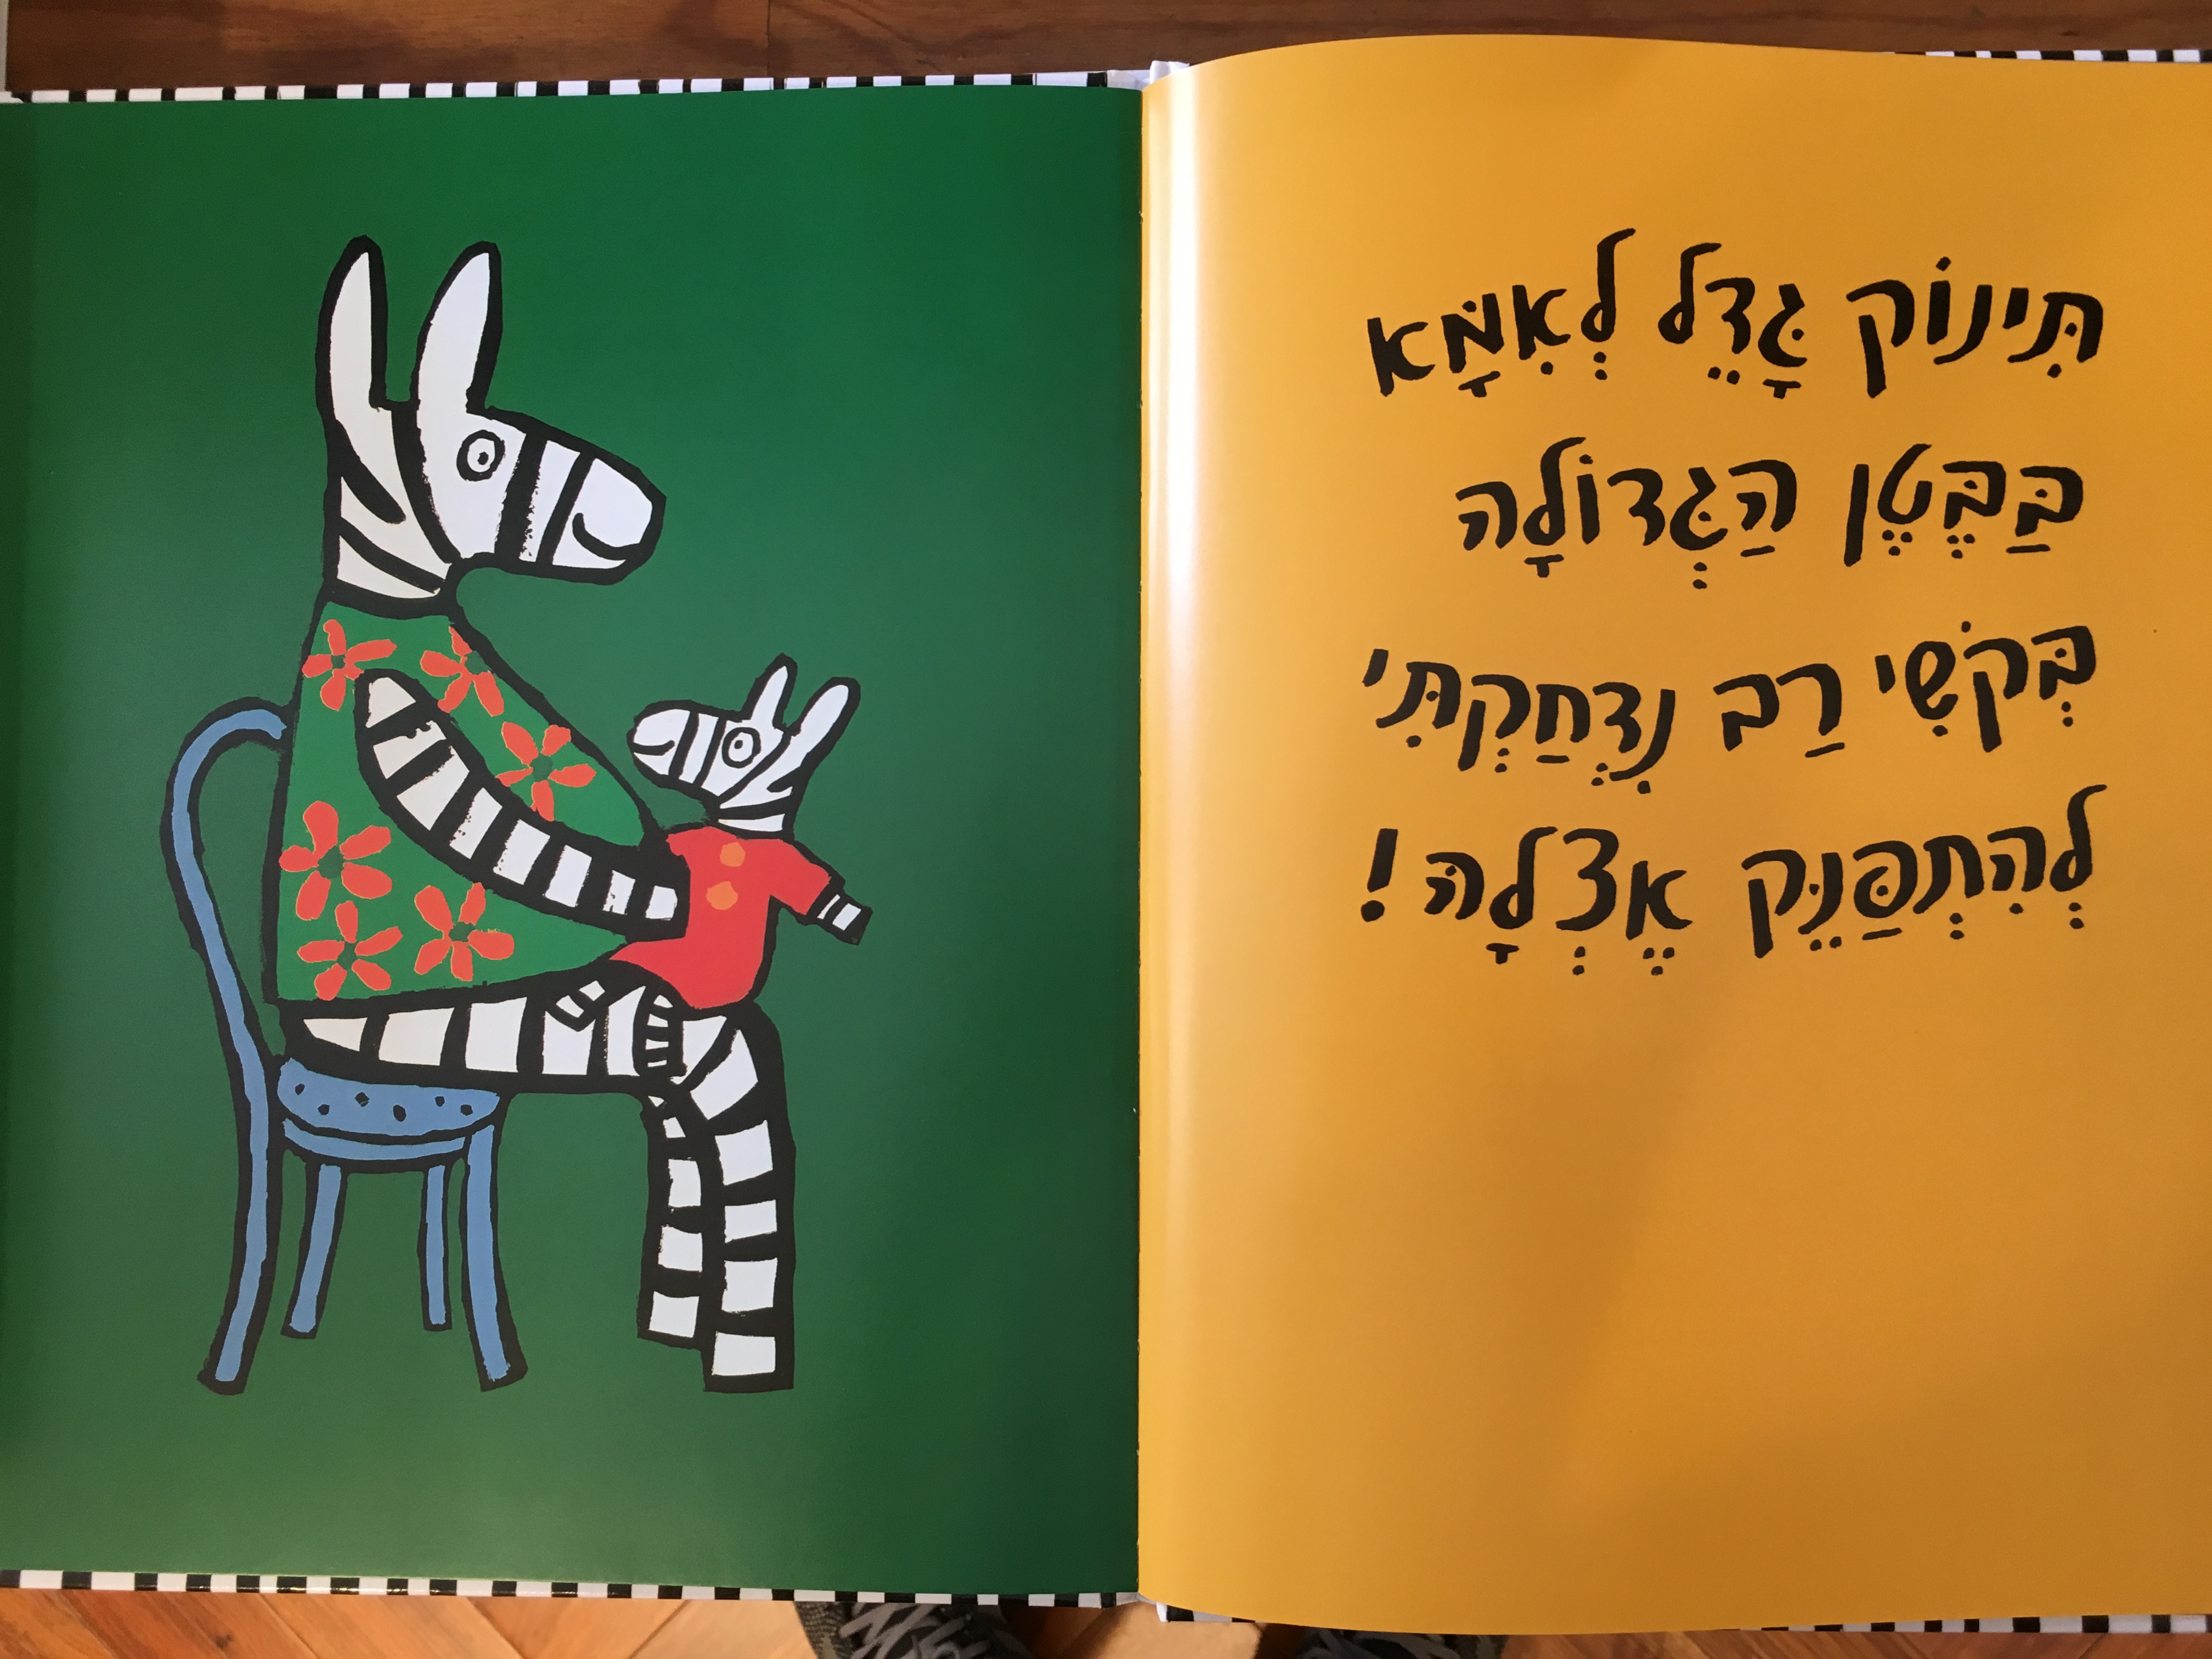 תִּינוֹק גָּדֵל לְאִמָּא
בַּבֶּטֶן הַגְּדוֹלָה
בְּקֹשִׁי רַב נִדְחַקְתִּי
לְהִתְפַּנֵּק אֶצְלָהּ!